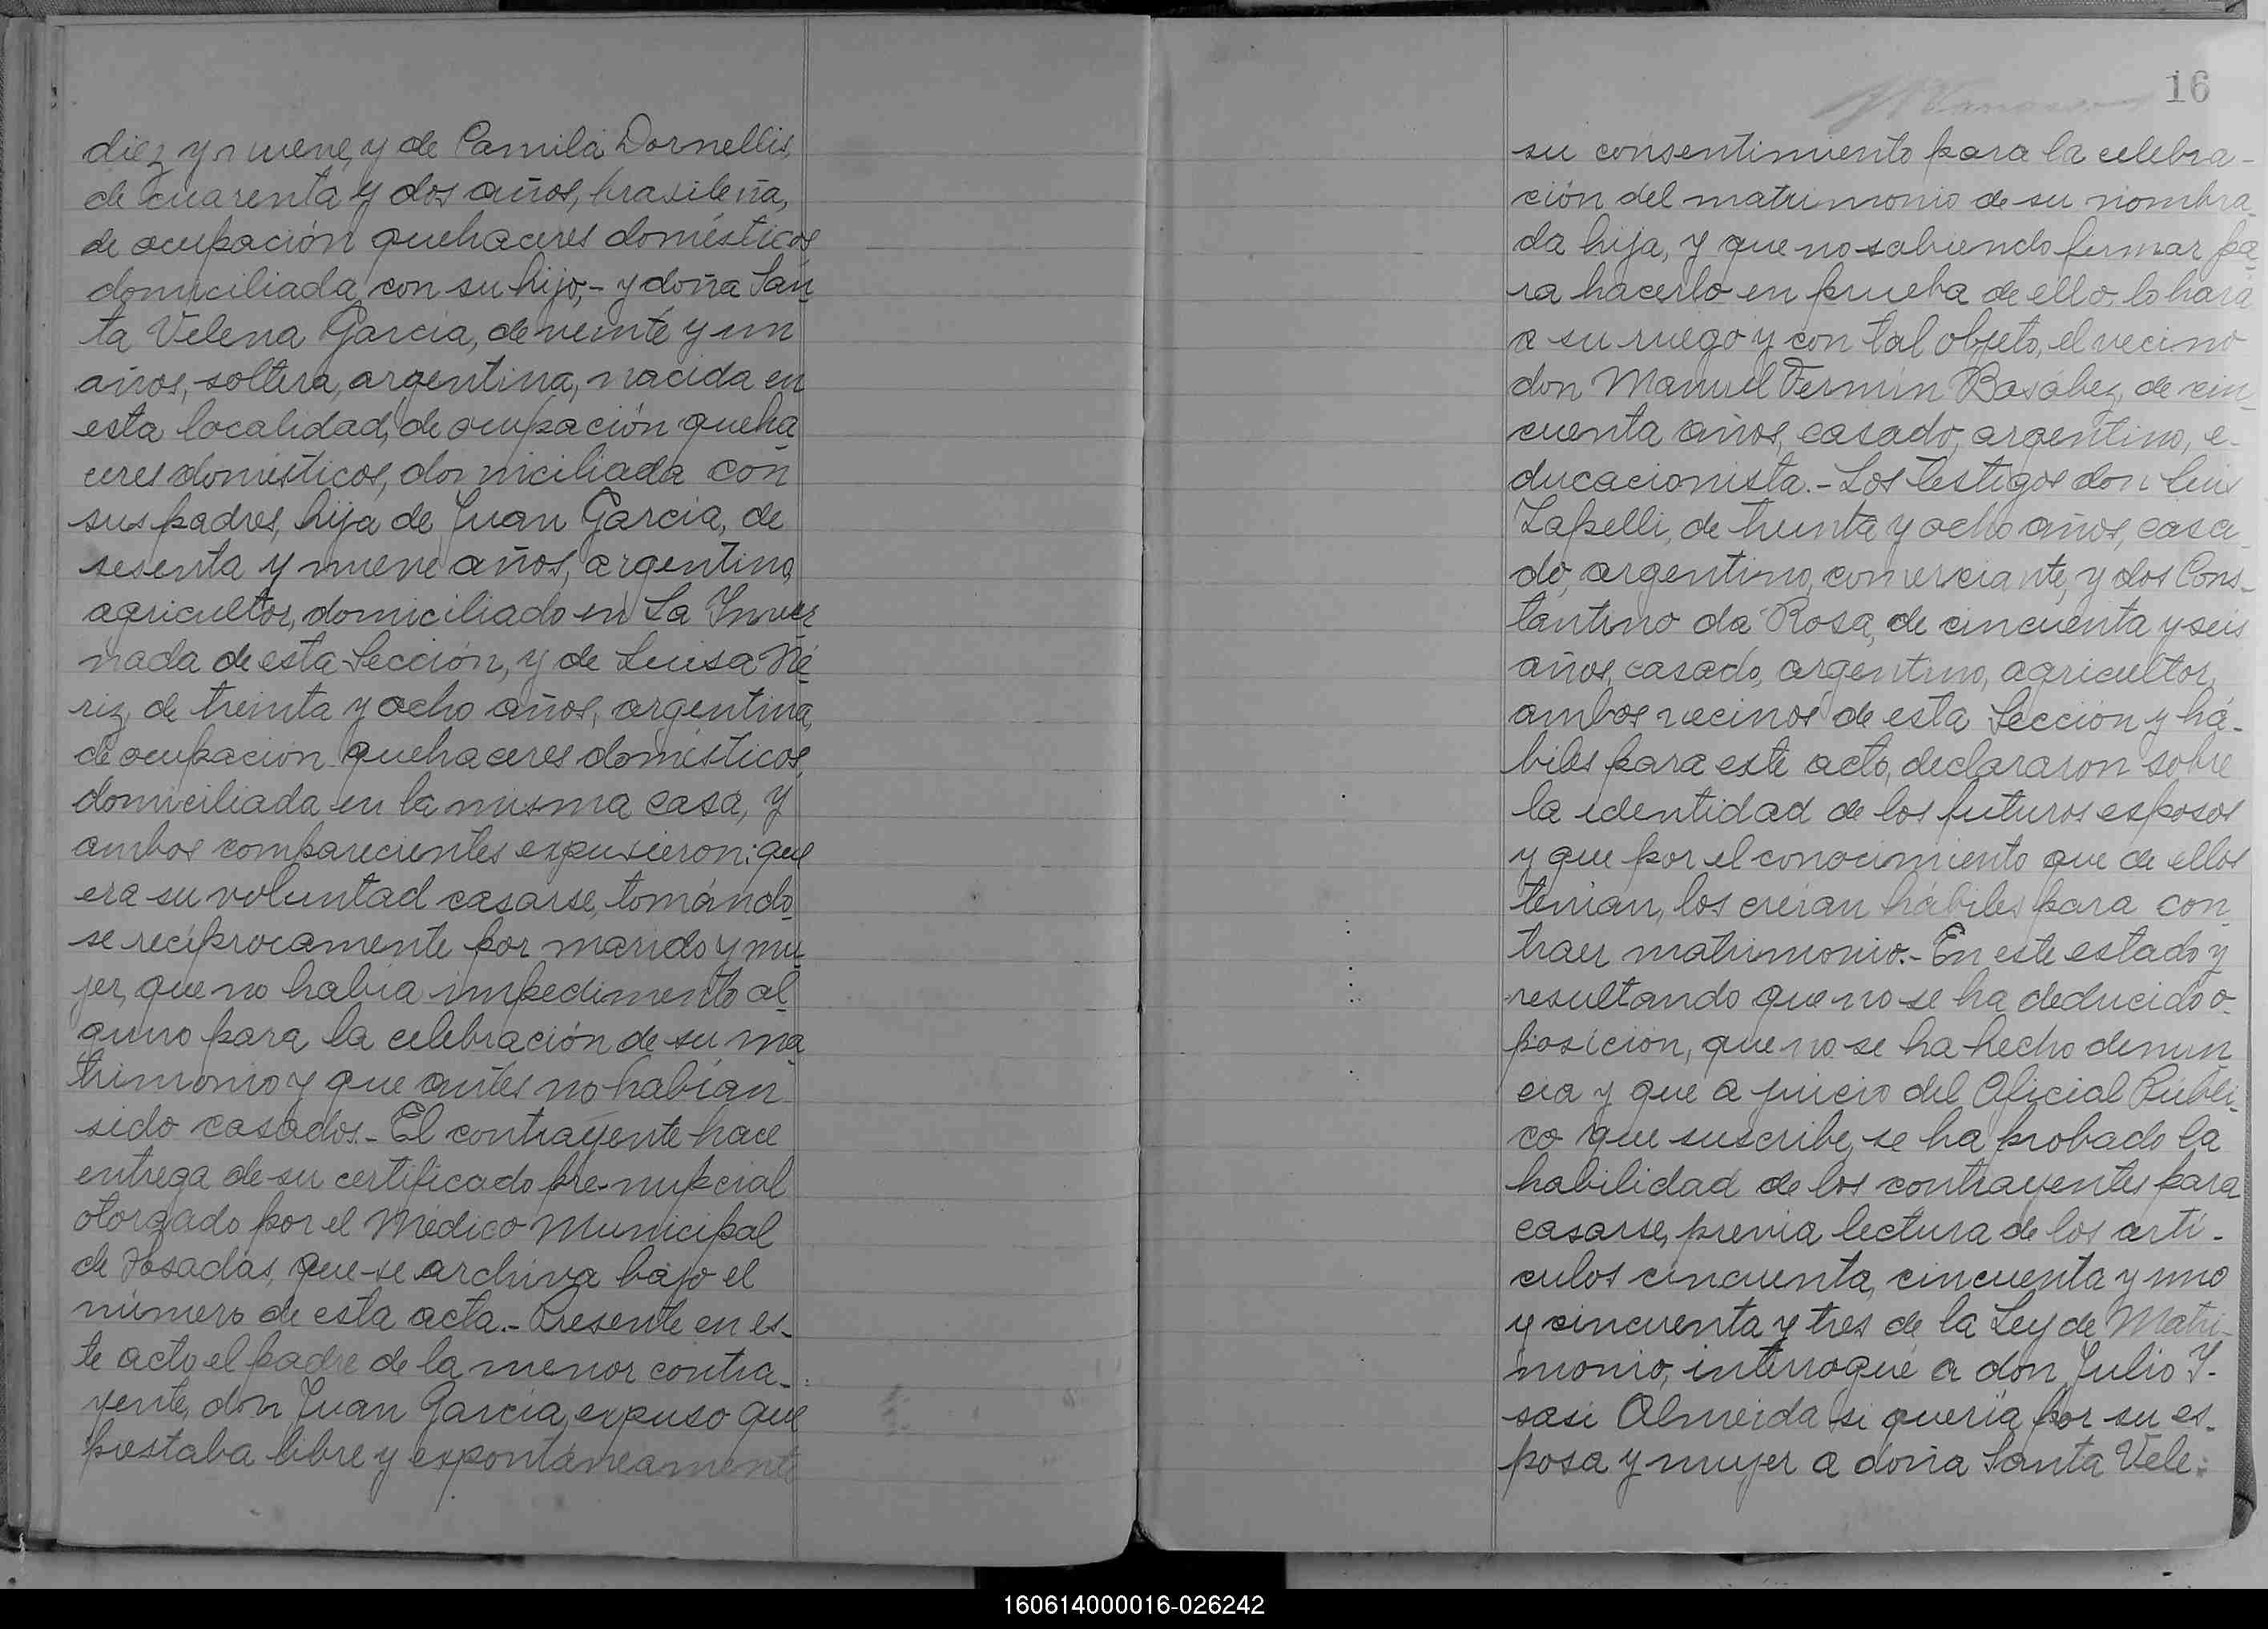 diez y nueve, y de Camila Dornellis,
de cuarenta y dos años, brasileña,
de ocupación quehaceres domésticos,
domiciliada con su hijo,- y doña San-
ta Velena García, de veinte y un
años, soltera, argentina, nacida en
esta localidad, de ocupación queha-
ceres domésticos, domiciliada con
sus padres, hija de Juan García, de
sesenta y nueve años, argentino,
agricultor, domiciliado en La Inver-
nada de esta Sección, y de Luisa Né-
riz, de treinta y ocho años, argentina,
de ocupación quehaceres domésticos,
domiciliada en la misma casa, y
ambos comparecientes expusieron: que
era su voluntad casarse, tomándo-
se recíprocamente por marido y mu-
jer, que no había impedimento al-
guno para la celebración de su ma-
trimonio y que antes no habían
sido casados.- El contrayente hace
entrega de su certificado pre-nupcial
otorgado por el Médico Municipal
de Posadas, que se archiva bajo el
número de esta acta.- Presente en es-
te acto el padre de la menor contra-
yente, don Juan García, expuso que
prestaba libre y expontáneamente
16
su consentimiento para la celebra-
ción del matrimonio de su nombra-
da hija, y que no sabiendo firmar pa-
ra hacerlo en prueba de ello, lo hará
a su ruego y con tal objeto, el vecino
don Manuel Fermín Basábez, de cin-
cuenta años, casado, argentino, e-
ducacionista.- Los testigos don Luis
Zapelli, de treinta y ocho años, casa-
do, argentino, comerciante, y dos Cons-
tantino da Rosa, de cincuenta y seis
años, casado, argentino, agricultor,
ambos vecinos de esta Sección y há-
biles para este acto, declararon sobre
la identidad de los futuros esposos
y que por el conocimiento que de ellos
tenían, los creían hábiles para con-
traer matrimonio.- En este estado y
resultando que no se ha deducido o-
posición, que no se ha hecho denun-
cia y que a juicio del Oficial Públi-
co que suscribe, se ha probado la
habilidad de los contrayentes para
casarse, previa lectura de los artí-
culos cincuenta, cincuenta y uno
y cincuenta y tres de la Ley de Matri-
monio, interrogué a don Julio I-
sasi Almeida si quería por su es-
posa y mujer a doña Santa Vele-
160614000016-026242